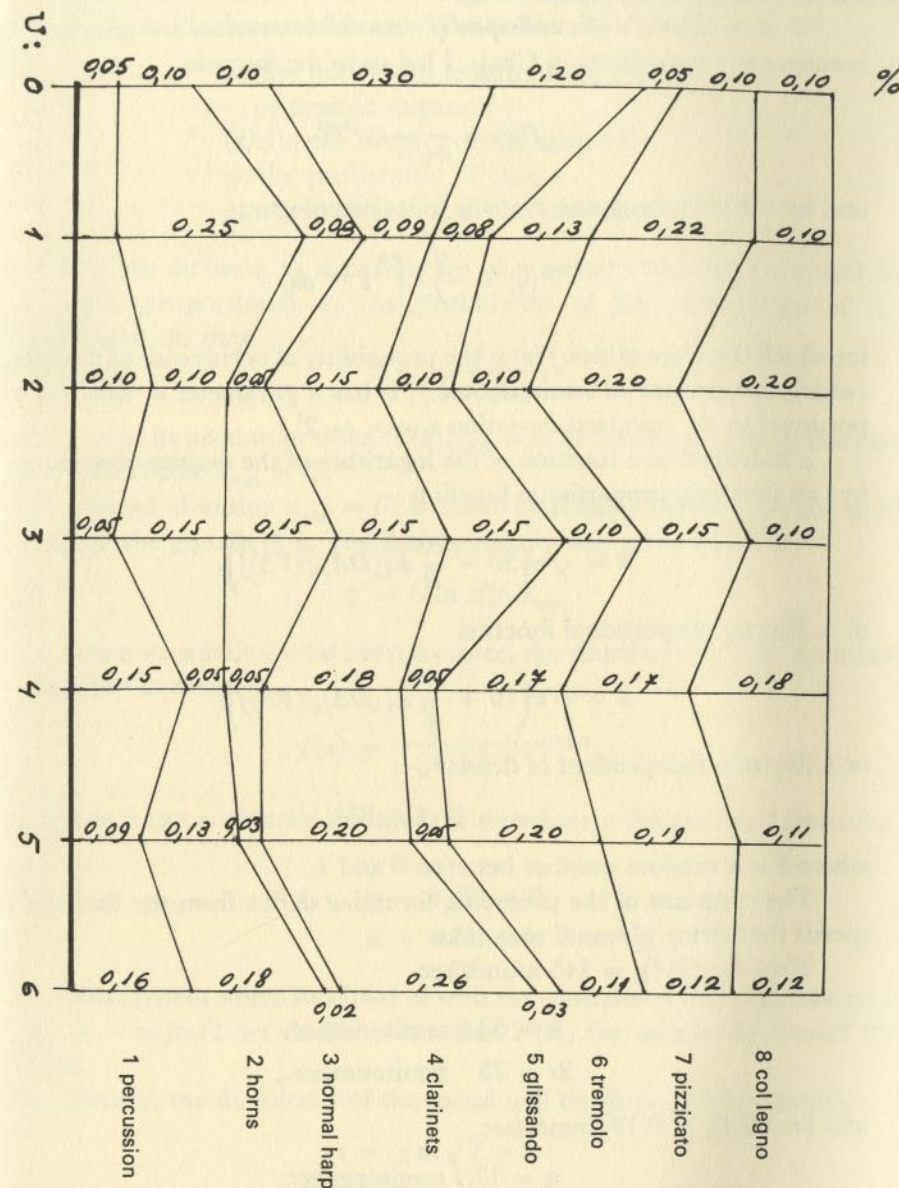 U:
0 0,05 0,10 0,10 0,30 0,20 0,05 0,10 0,10 %
1 0,25 0,08 0,09 0,08 0,13 0,22 0,10
2 0,10 0,10 0,05 0,15 0,10 0,10 0,20 0,20
3 0,05 0,15 0,15 0,15 0,15 0,10 0,15 0,10
4 0,15 0,05 0,05 0,18 0,05 0,17 0,17 0,18
5 0,09 0,13 0,03 0,20 0,05 0,20 0,19 0,11
6 0,16 0,18 0,02 0,26 0,03 0,11 0,12 0,12
1 percussion
2 horns
3 normal harp
4 clarinets
5 glissando
6 tremolo
7 pizzicato
8 col legno